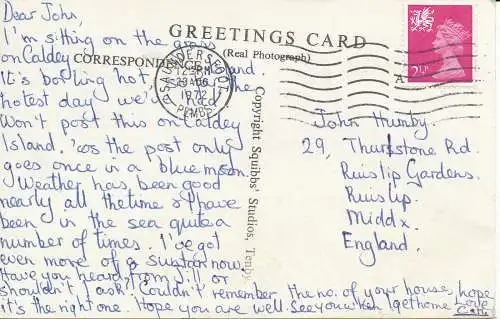 Dear John,
I'm sitting on the grass
on Caldey Island.
It's boiling hot the
hottest day we've had
Won't post this on Caldey
Island, 'cos the post only
goes once in a blue moon.
Weather has been good
nearly all the time & I have
been in the sea quite a
number of times. I've got
even more of a suntan now.
Have you heard from Jill or
shouldn't I ask? Couldn't remember the no. of your house, hope
it's the right one. Hope you are well. See you when I get home Love
GREETINGS CARD
(Real Photograph)
CORRESPONDENCE
SAUNDERSFOOT
12 PM
1972
PEMBS
2½P
Copyright Squibbs' Studios, Tenby.
John Humby
29, Thurlstone Rd.
Ruislip Gardens.
Ruislip.
Middx.
England.